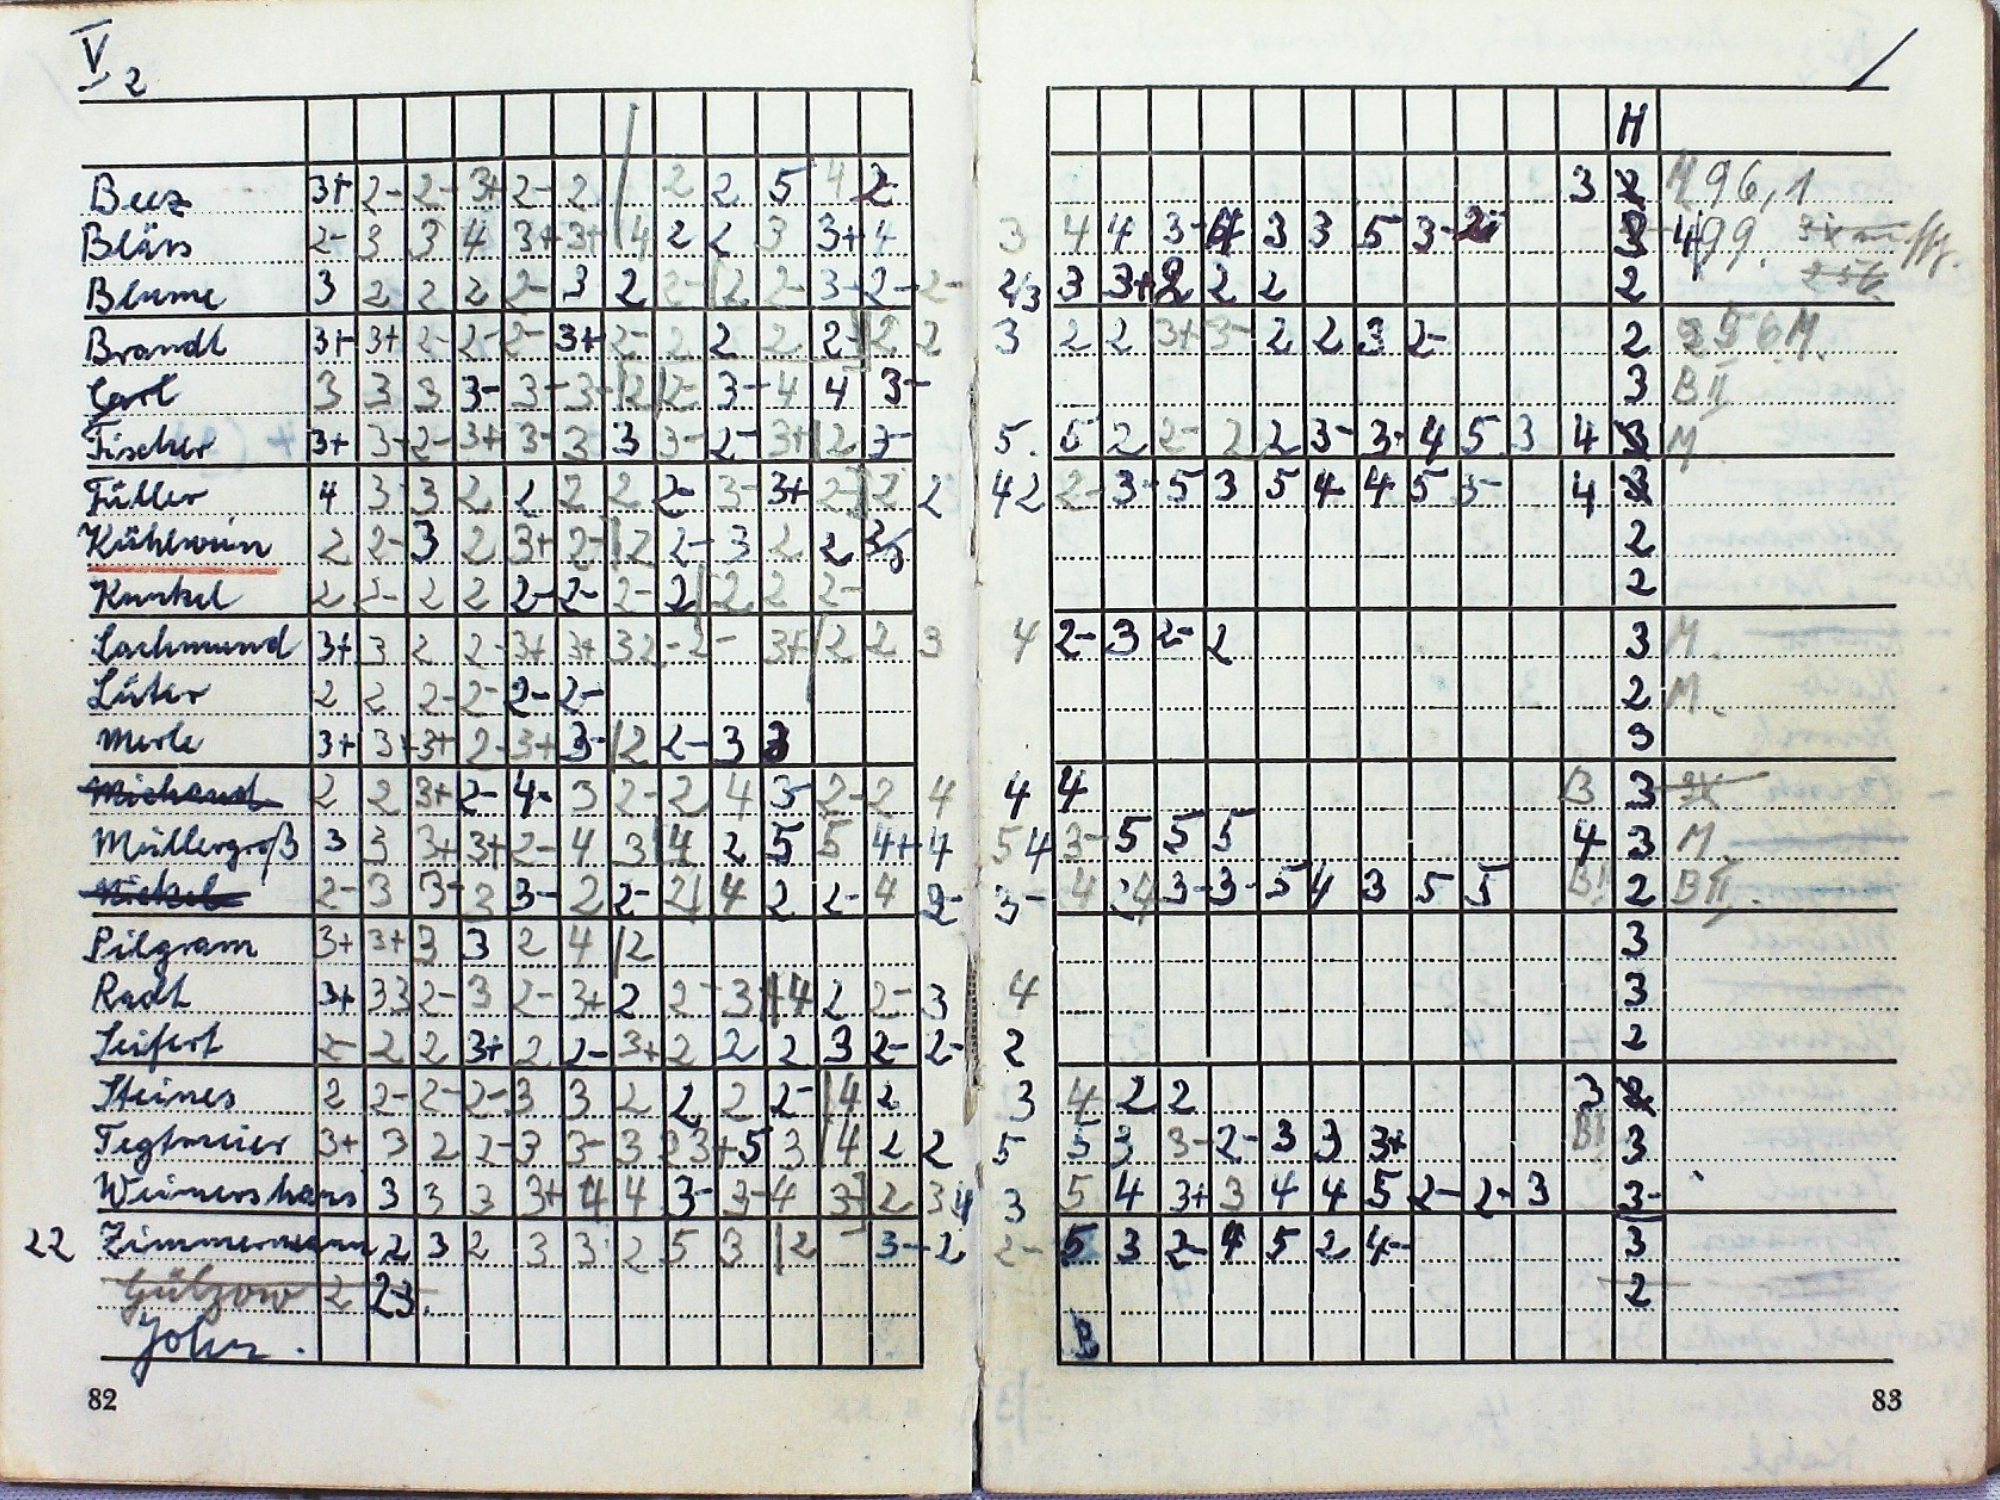 V 2
H
Beez 3+ 2- 2- 3+ 2- 2 / 2 2 5 4 2- 3 2 M 96,1
Blärs 2- 3 3 4 3+ 3+ /4 2 2 3 3+ 4 3 4 4 3- 4 3 3 5 3- 3 4 99.
Blume 3 2 2 2 2- 3 2 2- /2 2- 3- 2- 2- 2/3 3 3+ 2 2 2 2
Brandt 3+ 3+ 2- 2- 2- 3+ 2- 2 2 2 2- /2 2 3 2 2 3+ 3- 2 2 3 2- 2 M.
Carl 3 3 3 3- 3- 3- /2 /2- 3- 4 4 3- 3 B II
Fischer 3+ 3- 2- 3+ 3- 3 3 3- 2- 3+ /2 3- 5. 5 2 2- 2 2 3- 3- 4 5 3 4 3 M.
Füller 4 3 3 2 2 2 2 2- 3- 3+ 2- /2 2 4 2 2- 3- 5 3 5 4 4 5 3- 4 3
Kühlwein 2 2- 3 2 3+ 2- /2 2- 3 2 2 3/5 2
Kunkel 2 2- 2 2 2- 2- 2- 2 /2 2 2- 2
Lachmund 3+ 3 2 2- 3+ 3+ 3 2- 2- 3+ /2 2 3 4 2- 3 2- 2 3 M.
Lüter 2 2 2- 2- 2- 2- 2 M.
Merle 3+ 3+ 3+ 2- 3+ 3- /2 2- 3 3 3
Michaud 2 2 3+ 2- 4- 3 2- 2 4 3- 2- 2 4 4 4 B 3
Müllergroß 3 3 3+ 3+ 2- 4 3 /4 2 5 5 4+ 4 5 4 3- 5 5 5 4 3 M.
Nickel 2- 3 3- 3 3- 2 2- 2/ 4 2 2- 4 2- 3- 4 4 3- 3- 5 4 3 5 5 B II 2 B II.
Pilgram 3+ 3+ 3 3 2 4 /2 3
Radt 3+ 3 3 2- 3 2- 3+ 2 2- 3 /4 2 2- 3 4 3
Seifert 2- 2 2 3+ 2 2- 3+ 2 2 2 3 2- 2- 2 2
Steines 2 2- 2- 2- 3 3 2 2 2 2- /4 2 3 4 2 2 3 2
Tegtmeier 3+ 3 2 2- 3 3- 3 3 3+ 5 3 /4 2 2 5 5 3 3- 2- 3 3 3+ B I 3
Weimershaus 3 3 3 3+ 4 4 3- 3- 4 3- 2 3 4 3 5 4 3+ 3 4 4 5 2- 2- 3 3-
22 Zimmermann 2 3 2 3 3 2 5 3 /2 - 3- 2 2- 5 3 2- 4 5 2 4- 3
Gülzow 2 2 3. 2
John. B
82
83